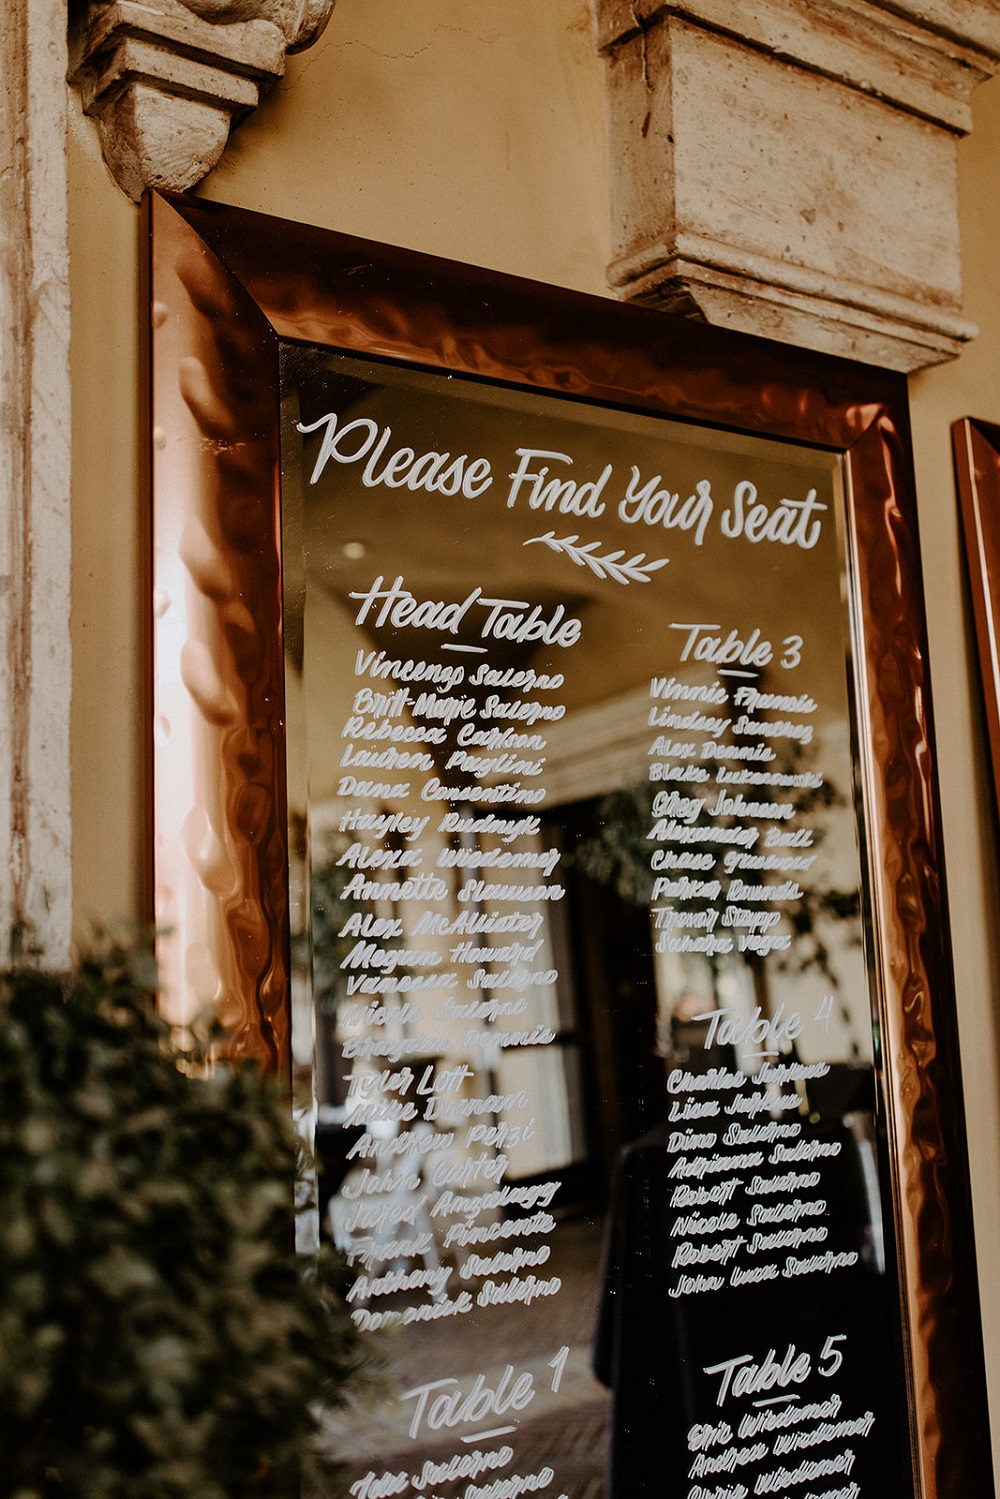 Please Find Your Seat
Head Table
Vincenzo Salerno
Britt-Marie Salerno
Rebecca Carlson
Lauren Puglini
Dana Cosentino
Hayley Rudnyk
Alexa Wiedemer
Annette Slawson
Alex McAllister
Megan Howard
Vanessa Salerno
Nicole Salerno
Brayden Dennis
Tyler Lott
Mike Dignam
Andrew Perzi
John Carter
Jared
Frank Pinconte
Anthony Salerno
Domonick Salerno
Table 1
Salerno
Salerno
Table 3
Vinnie Francois
Lindsey Sanchez
Alex Dennis
Blake
Greg Johnson
Alexander Bell
Chase Griswold
Parker Rounds
Trevor Stapp
Sahara Vega
Table 4
Charles Jenkins
Lisa Jenkins
Dino Salerno
Adriana Salerno
Robert Salerno
Nicole Salerno
Robert Salerno
John Luca Salerno
Table 5
Eric Wiedemer
Andrea Wiedemer
Chris Wiedemer
Wiedemer